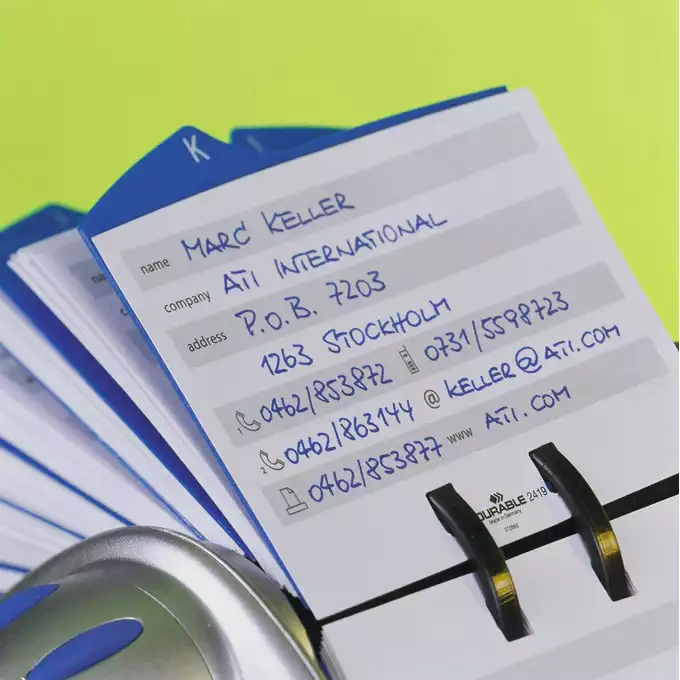 K
name MARC KELLER
company ATI INTERNATIONAL
address P.O.B. 7203
1263 STOCKHOLM
1 0462/853872 0731/5598723
2 0462/863144 @ KELLER@ATI.COM
0462/853877 www ATI.COM
DURABLE 2419
Made in Germany